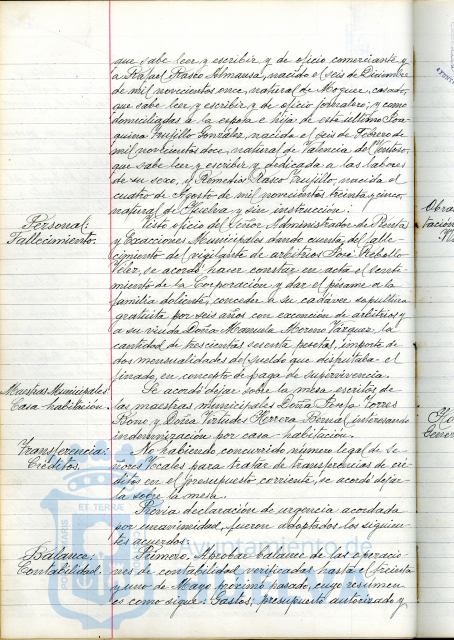 que sabe leer y escribir y de oficio comerciante y
a Rafael Rasco Almansa, nacido el seis de Diciembre
de mil novecientos once, natural de Moguer, casado,
que sabe leer y escribir y de oficio jornalero, y como
domiciliadas a la esposa e hija de este último Joa-
quina Trujillo González, nacida el seis de Febrero de
mil novecientos doce, natural de Valencia del Ventoso,
que sabe leer y escribir y dedicada a las labores
de su sexo, y Remedios Rasco Trujillo, nacida el
cuatro de Agosto de mil novecientos treinta y cinco,
natural de Huelva y sin instrucción.
Personal:
Fallecimiento.
Visto oficio del Señor Administrador de Rentas
y Exacciones Municipales dando cuenta del falle-
cimiento del vigilante de arbitrios José Rebollo
Vélez, se acordó hacer constar en acta el senti-
miento de la Corporación y dar el pésame a la
familia doliente, conceder a su cadáver sepultura
gratuita por seis años con exención de arbitrios y
a su viuda Doña Manuela Moreno Vázquez, la
cantidad de trescientas sesenta pesetas, importe de
dos mensualidades del sueldo que disfrutaba el
finado, en concepto de paga de supervivencia.
Maestras Municipales
Casa-habitación.
Se acordó dejar sobre la mesa escritos de
las maestras municipales Doña Torres
Bono y Doña Virtudes Herrera Bernal interesando
indemnización por casa-habitación.
Transferencia:
Créditos.
No habiendo concurrido número legal de Se-
ñores Vocales para tratar de transferencias de cré-
ditos en el presupuesto corriente, se acordó dejar-
la sobre la mesa.
Previa declaración de urgencia acordada
por unanimidad, fueron adoptados los siguien-
tes acuerdos:
Balance:
Contabilidad.
Primero. Aprobar balance de las operacio-
nes de contabilidad verificadas hasta el treinta
y uno de Mayo próximo pasado, cuyo resumen
es como sigue: Gastos; presupuesto autorizado y
ET TERRÆ
Ayuntamiento de